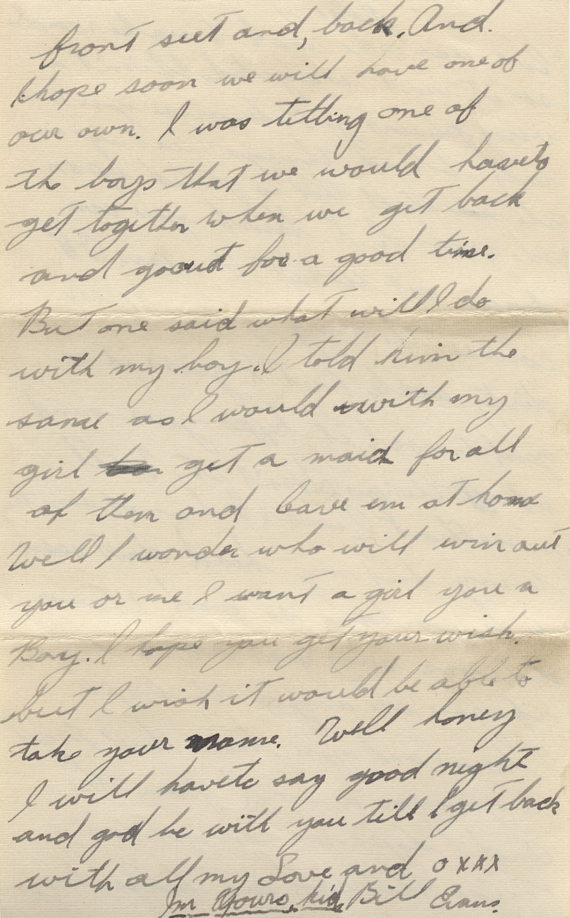 front seet and, back. And.
I hope soon we will have one of
our own. I was telling one of
the boys that we would haveto
get together when we get back
and goout for a good time.
But one said what will I do
with my boy. I told him the
same as I would with my
girl get a maid for all
of them and leave em at home
Well I wonder who will win out
you or me I want a girl you a
Boy. I hope you get your wish.
but I wish it would be able to
take your name. Well honey
I will haveto say good night
and god be with you till I get back
with all my Love and oxxx
Im Yours, kid, Bill Evans.